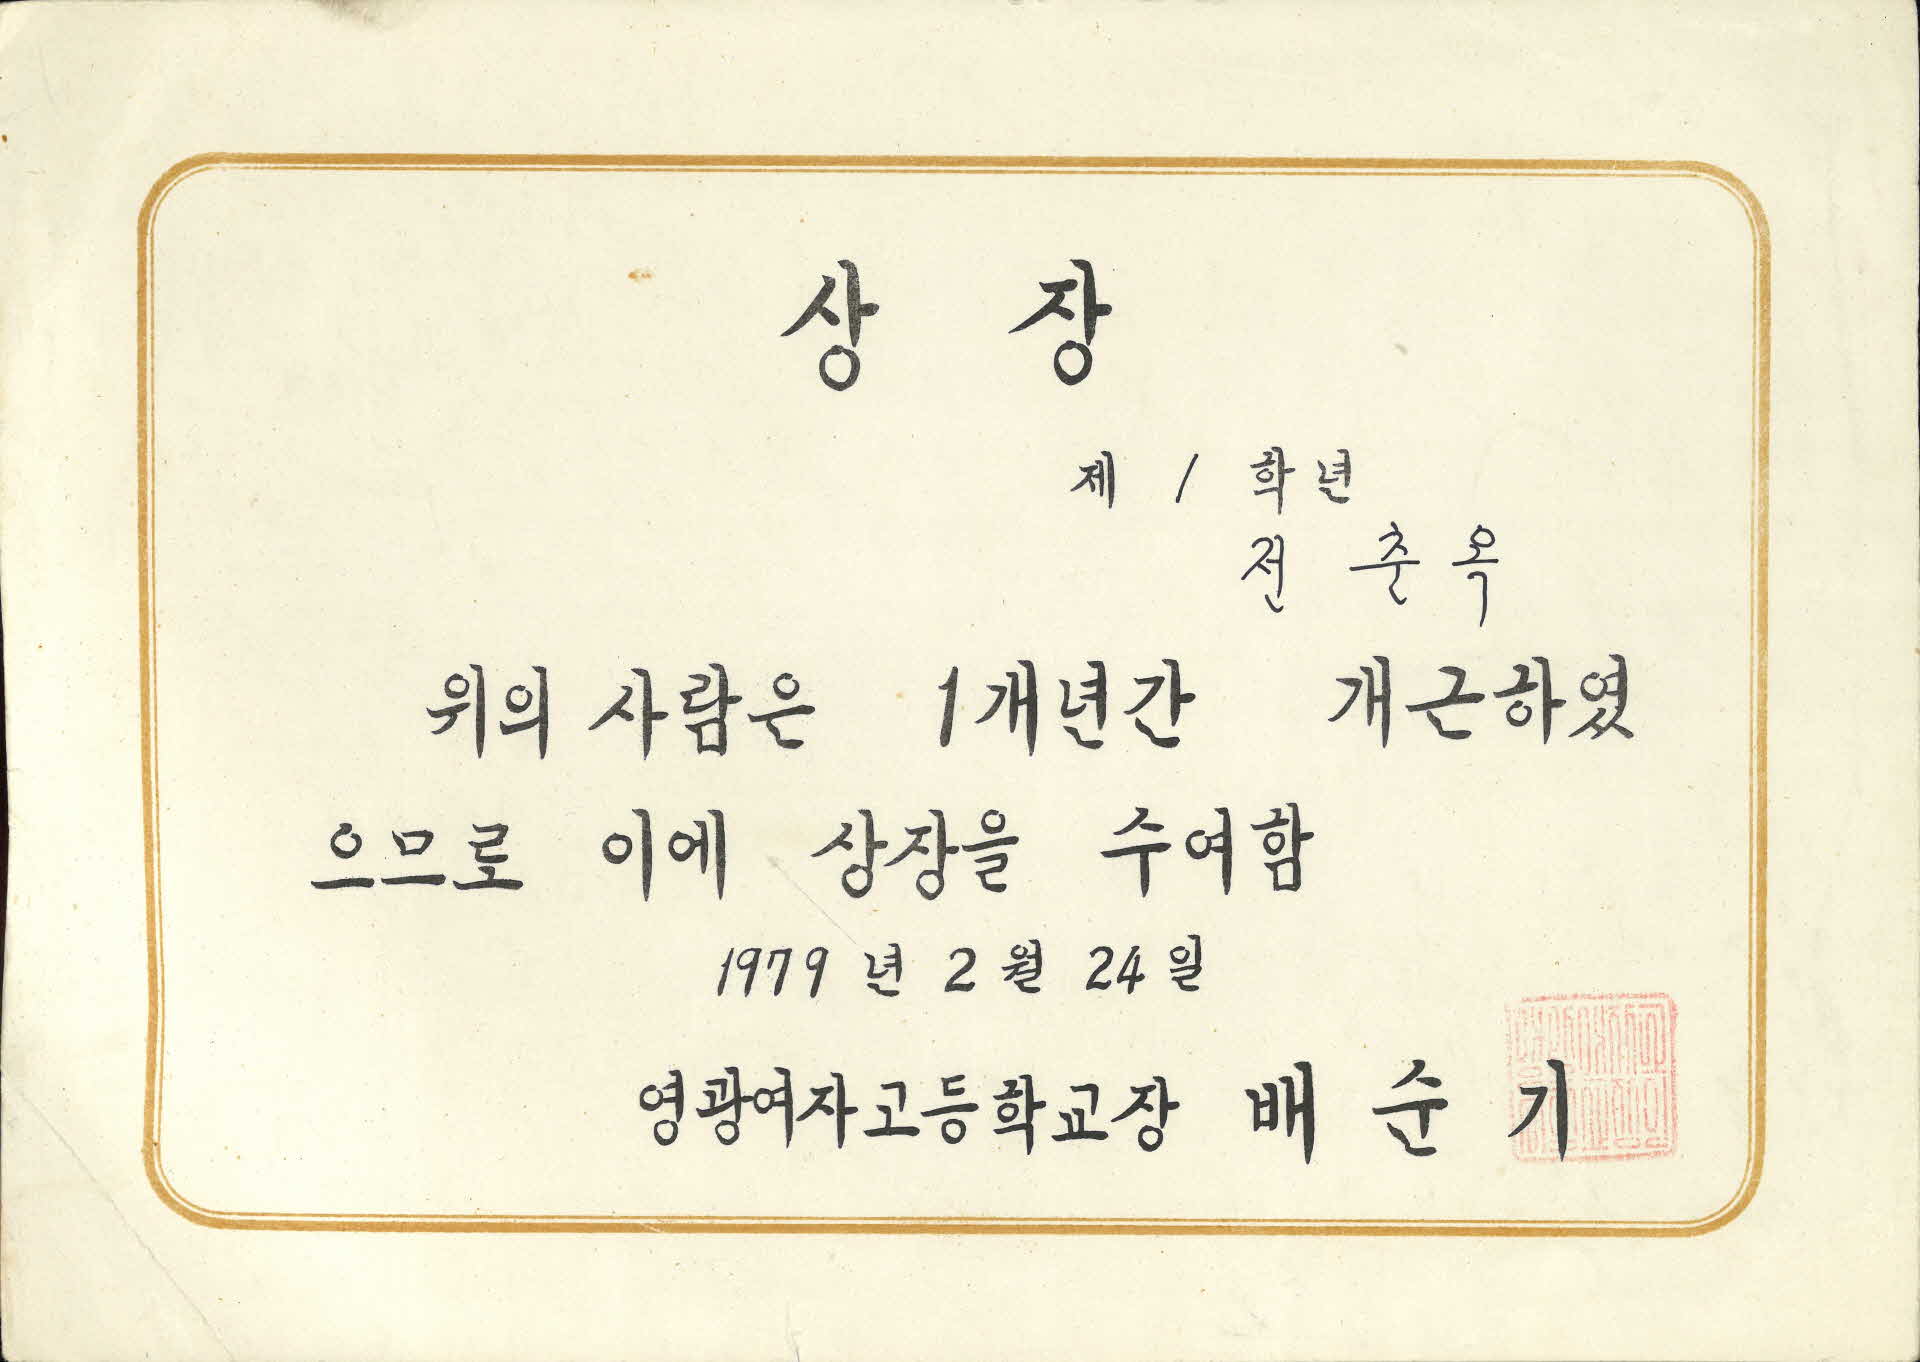 상 장
제 1 학년
전 춘 옥
위의 사람은 1개년간 개근하였
으므로 이에 상장을 수여함
1979 년 2 월 24 일
영광여자고등학교장 배 순 기